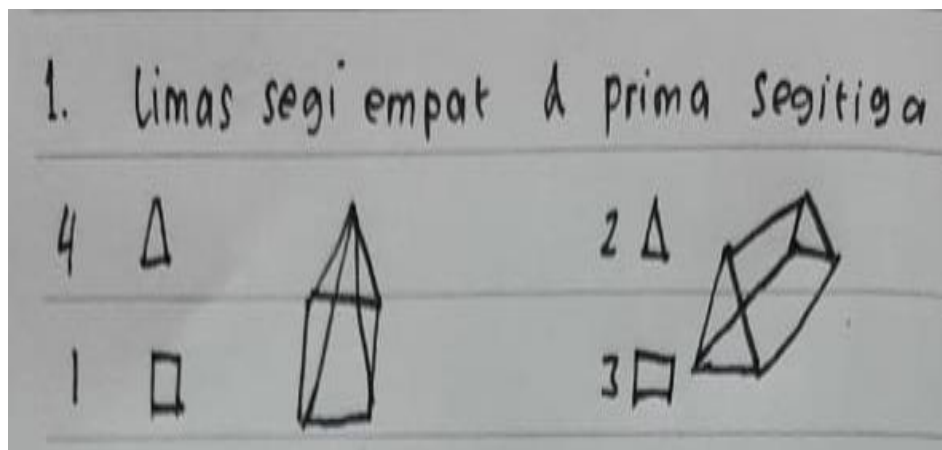 1. Limas segi empat d prima segitiga
4 2
1 3